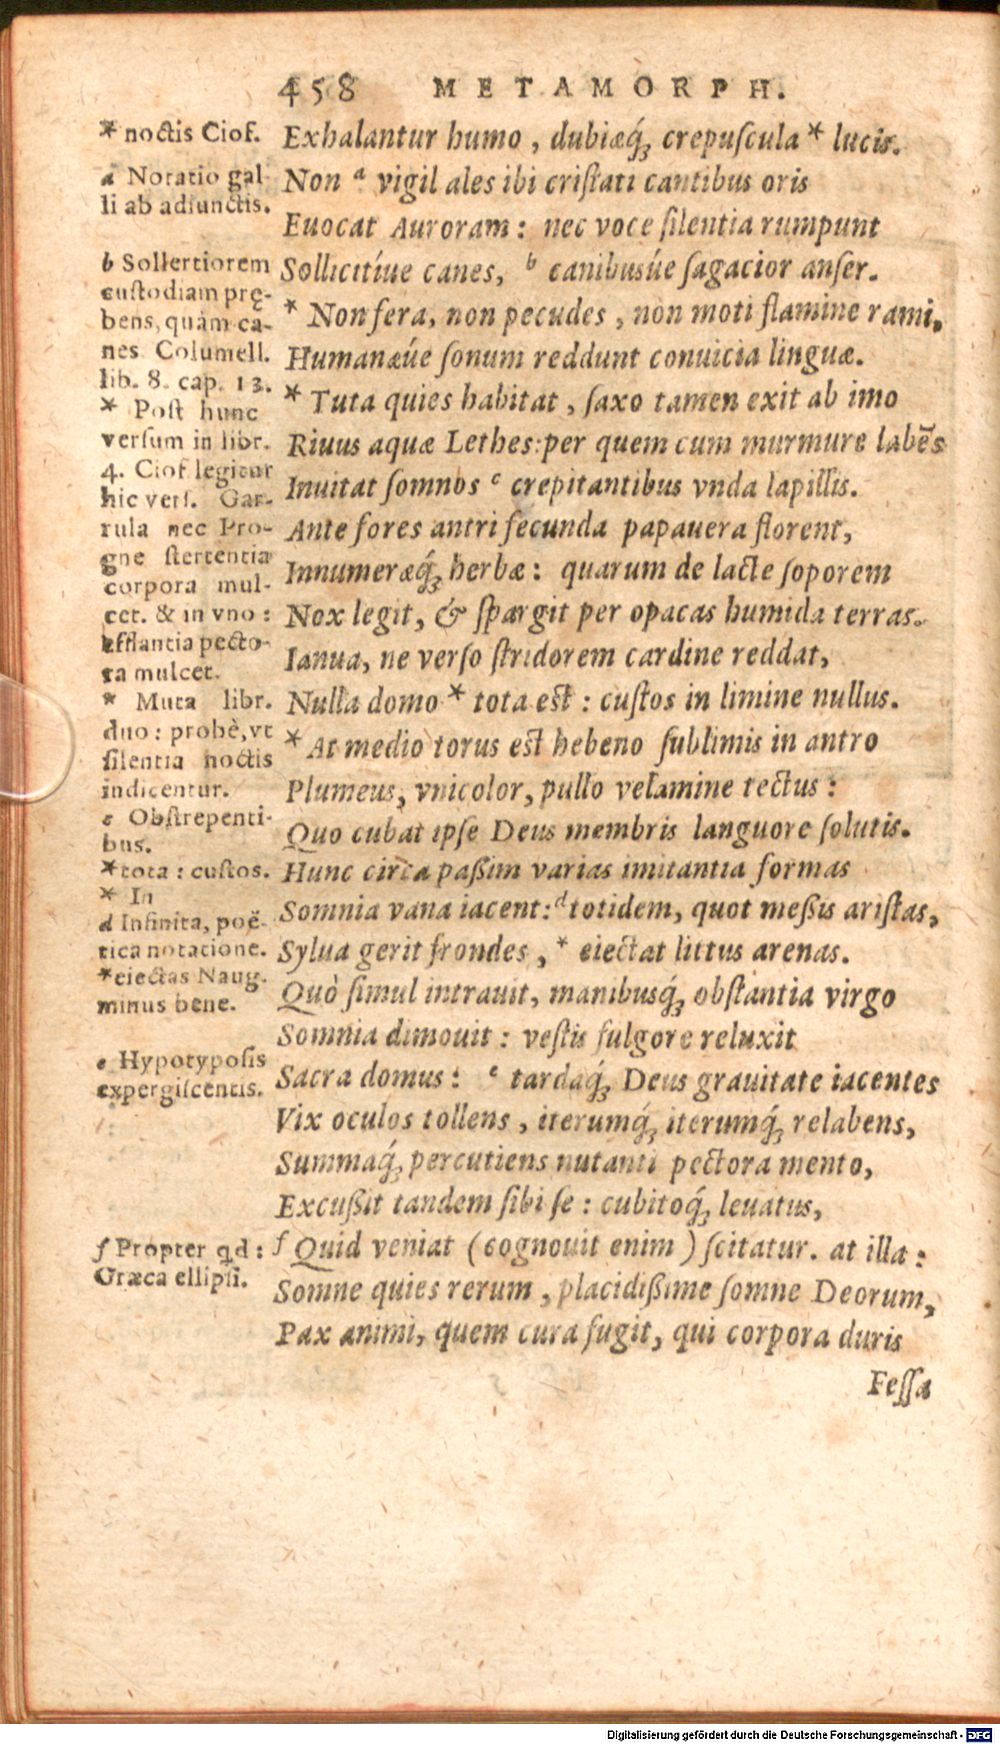 458 METAMORPH.
* noctis Ciof.
a Notatio gal-
li ab adiunctis.
b Sollertiorem
custodiam prę-
bens, quàm ca-
nes Columell.
lib. 8. cap. 13.
* Post hunc
versum in libr.
4. Ciof legitur
hic vers. Gar-
rula nec Pro-
gne stertentia
corpora mul-
cet. & in vno:
Efflantia pecto-
ra mulcet.
* Muta libr.
duo: probè, vt
silentia noctis
indicentur.
c Obstrepenti-
bus.
* tota: custos.
* In
d Infinita, poë-
tica notatione.
* eiectas Naug.
minus bene.
e Hypotyposis
expergiscentis.
f Propter qd:
Græca ellipsi.
Exhalantur humo, dubiæq́; crepuscula * lucis.
Non a vigil ales ibi cristati cantibus oris
Euocat Auroram: nec voce silentia rumpunt
Sollicitíue canes, b canibusúe sagacior anser.
* Non fera, non pecudes, non moti flamine rami,
Humanæúe sonum reddunt conuicia linguæ.
* Tuta quies habitat, saxo tamen exit ab imo
Riuus aquæ Lethes: per quem cum murmure labēs
Inuitat somnos c crepitantibus vnda lapillis.
Ante fores antri fecunda papauera florent,
Innumeræq́; herbæ: quarum de lacte soporem
Nox legit, & spargit per opacas humida terras.
Ianua, ne verso stridorem cardine reddat,
Nulla domo * tota est: custos in limine nullus.
* At medio torus est hebeno sublimis in antro
Plumeus, vnicolor, pullo velamine tectus:
Quo cubat ipse Deus membris languore solutis.
Hunc circa paßim varias imitantia formas
Somnia vana iacent: d totidem, quot meßis aristas,
Sylua gerit frondes, * eiectat littus arenas.
Quò simul intrauit, manibusq́; obstantia virgo
Somnia dimouit: vestis fulgore reluxit
Sacra domus: e tardaq́; Deus grauitate iacentes
Vix oculos tollens, iterumq́; iterumq́; relabens,
Summaq́; percutiens nutanti pectora mento,
Excußit tandem sibi se: cubitoq́; leuatus,
f Quid veniat (cognouit enim) scitatur. at illa:
Somne quies rerum, placidißime somne Deorum,
Pax animi, quem cura fugit, qui corpora duris
Fessa
Digitalisierung gefördert durch die Deutsche Forschungsgemeinschaft - DFG